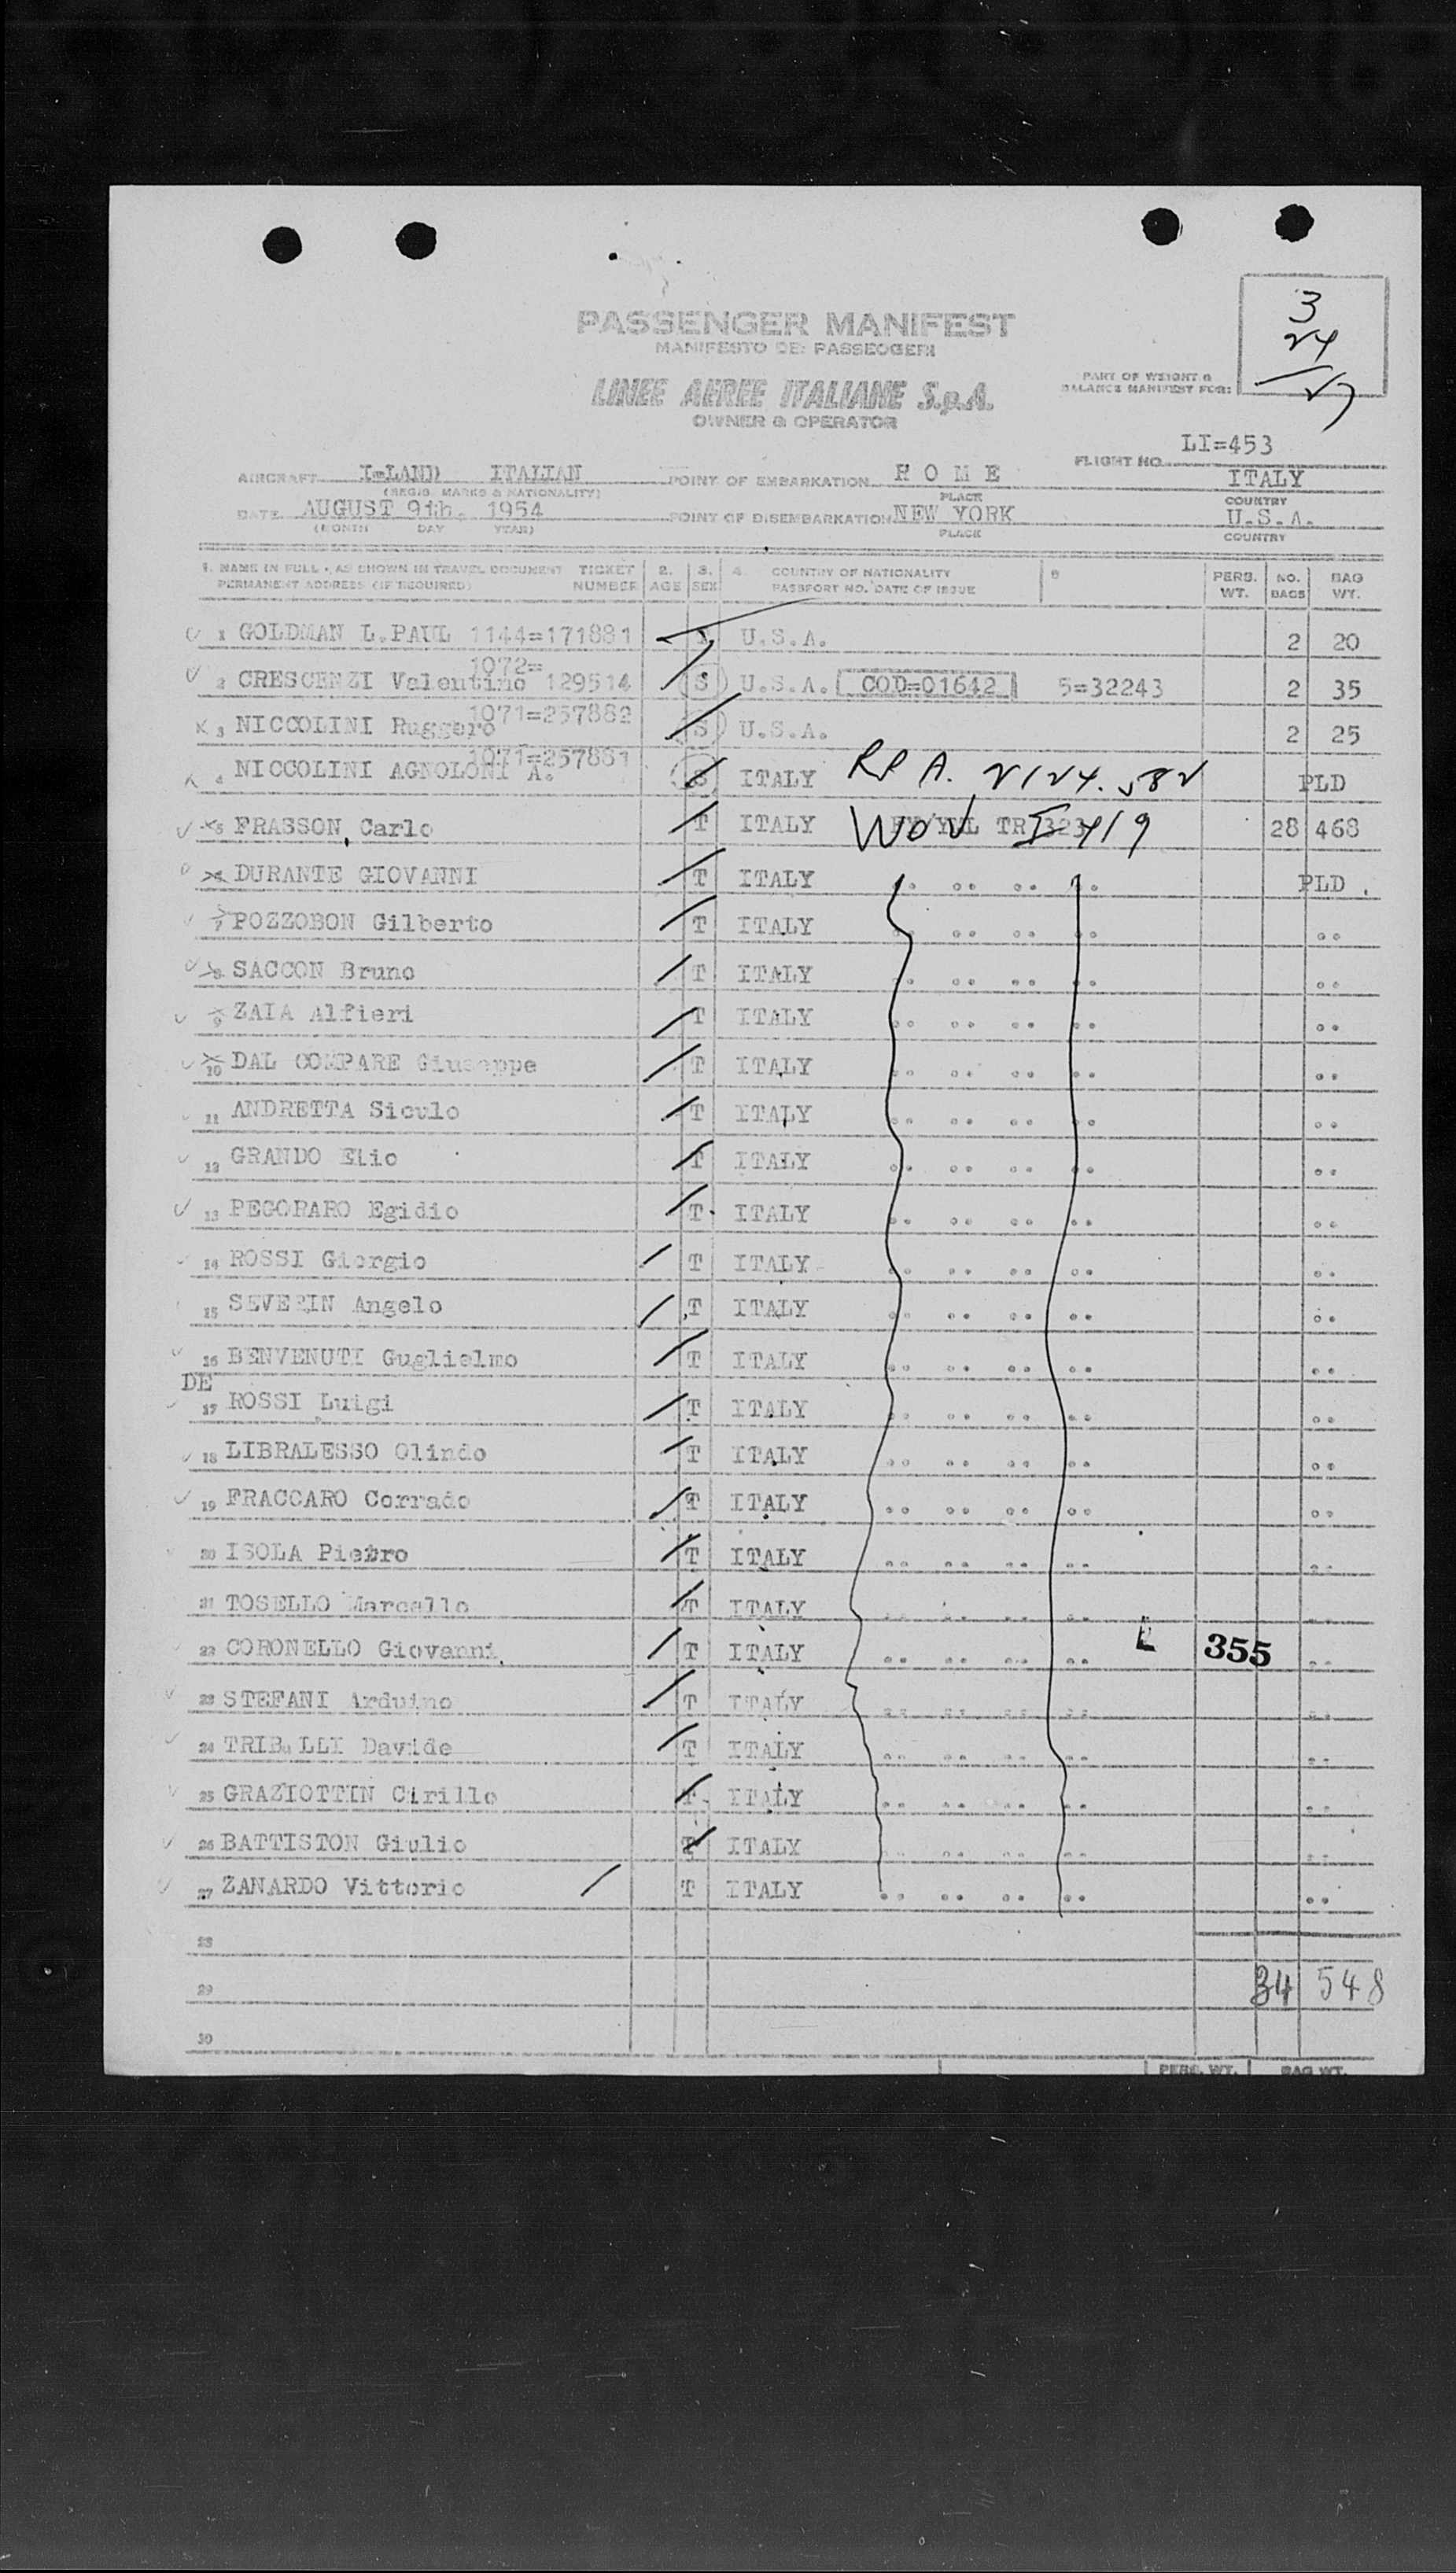 3
24
27
PASSENGER MANIFEST
MANIFESTO DEI PASSEGGERI
LINEE AEREE ITALIANE S.p.A.
OWNER & OPERATOR
PART OF WEIGHT &
BALANCE MANIFEST FOR:
FLIGHT NO. LI=453
AIRCRAFT I=LAND ITALIAN POINT OF EMBARKATION R O M E ITALY
(REGIS. MARKS & NATIONALITY) PLACE COUNTRY
DATE AUGUST 9th. 1954 POINT OF DISEMBARKATION NEW YORK U.S.A.
(MONTH DAY YEAR) PLACE COUNTRY
1. NAME IN FULL, AS SHOWN IN TRAVEL DOCUMENT TICKET 2. 3. 4. COUNTRY OF NATIONALITY PERS. NO. BAG
PERMANENT ADDRESS (IF REQUIRED) NUMBER AGE SEX PASSPORT NO. DATE OF ISSUE WT. BAGS WT.
1 GOLDMAN L.PAUL 1144=171881 U.S.A. 2 20
1072=
2 CRESCENZI Valentino 129514 S U.S.A. COD=01642 5=32243 2 35
1071=257882
3 NICCOLINI Ruggero S U.S.A. 2 25
1071=257881
4 NICCOLINI AGNOLONI A. S ITALY PLD
5 FRASSON, Carlo T ITALY 28 468
DURANTE GIOVANNI T ITALY PLD
7 POZZOBON Gilberto T ITALY
8 SACCON Bruno T ITALY
9 ZAIA Alfieri T ITALY
10 DAL COMPARE Giuseppe T ITALY
11 ANDRETTA Siculo T ITALY
12 GRANDO Elio T ITALY
13 PECORARO Egidio T ITALY
14 ROSSI Giorgio T ITALY
15 SEVERIN Angelo T ITALY
16 BENVENUTI Guglielmo T ITALY
DE
17 ROSSI Luigi T ITALY
18 LIBRALESSO Olindo T ITALY
19 FRACCARO Corrado T ITALY
20 ISOLA Pietro T ITALY
21 TOSELLO Marcello T ITALY
22 CORONELLO Giovanni T ITALY 355
23 STEFANI Arduino T ITALY
24 TRIBULLI Davide T ITALY
25 GRAZIOTTIN Cirillo T ITALY
26 BATTISTON Giulio T ITALY
27 ZANARDO Vittorio T ITALY
28
29 34 548
30
PERS. WT. BAG WT.